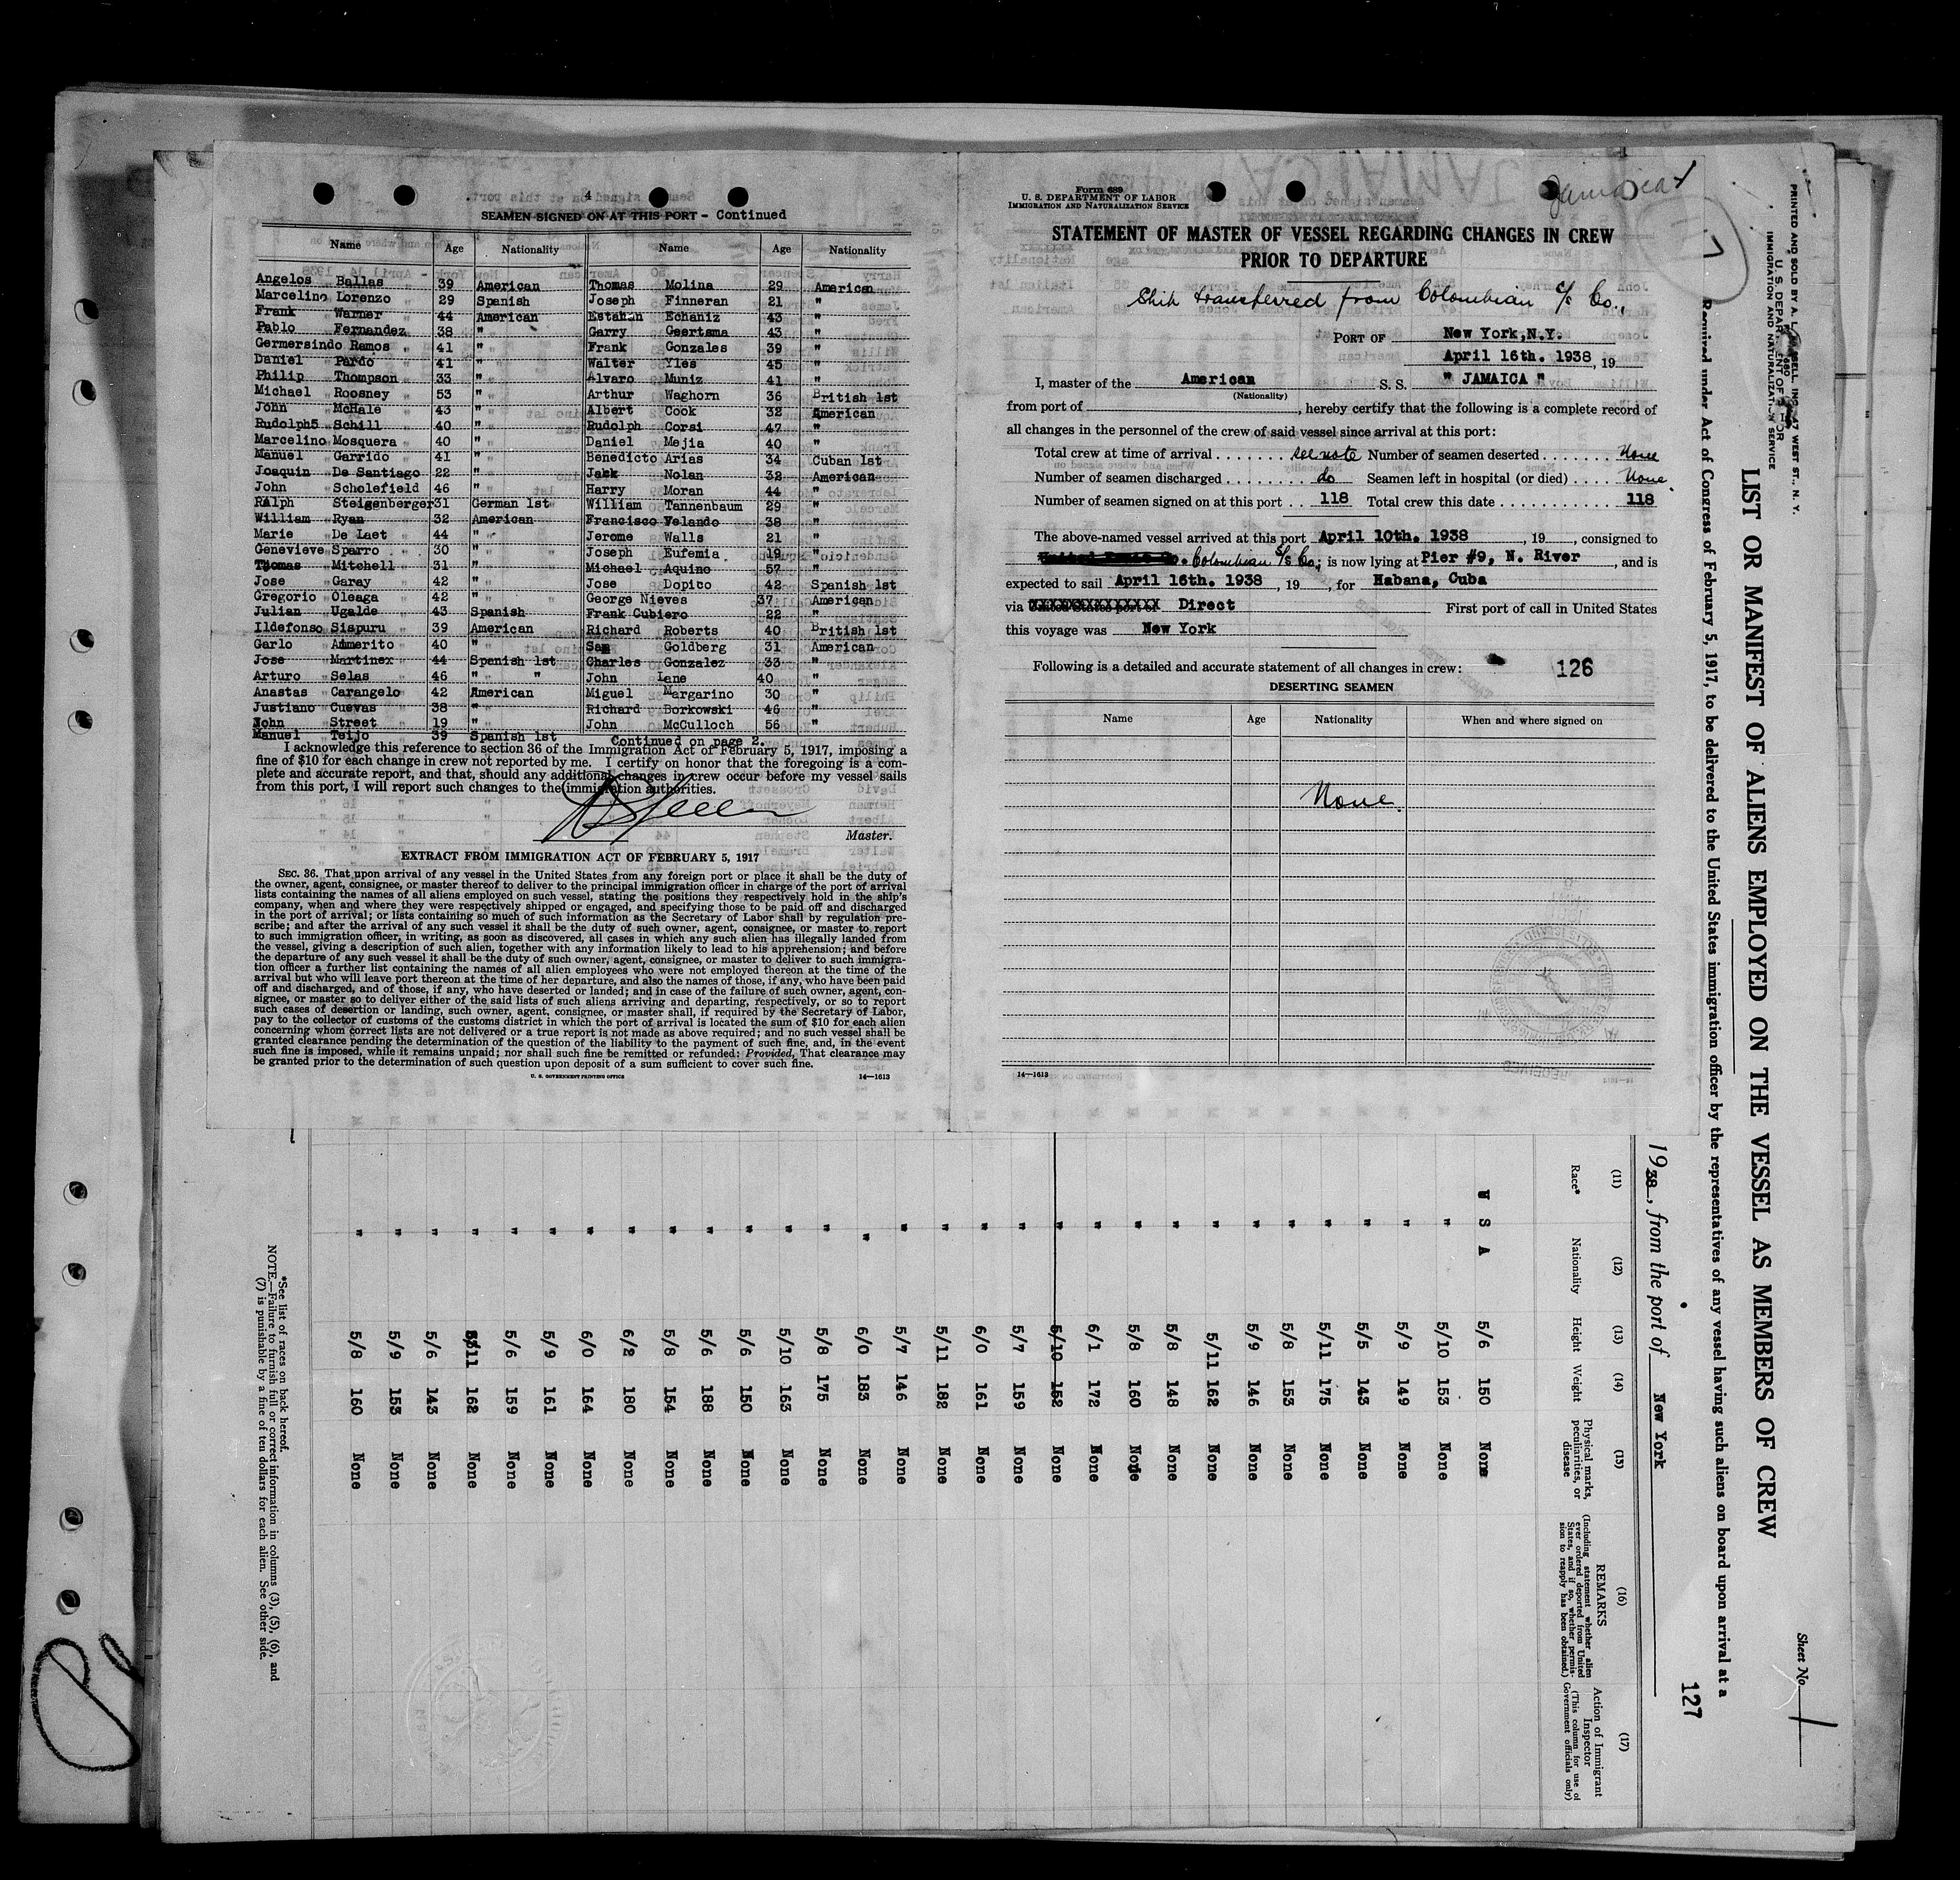 4
SEAMEN SIGNED ON AT THIS PORT - Continued
Name Age Nationality Name Age Nationality
Angelos Ballas 39 American Thomas Molina 29 American
Marcelino Lorenzo 29 Spanish Joseph Finneran 21 "
Frank Warner 44 American Estahan Echaniz 43 "
Pablo Fernandez 38 " Garry Geertsma 43 "
Germersindo Ramos 41 " Frank Gonzales 39 "
Daniel Pardo 41 " Walter Yles 45 "
Philip Thompson 33 " Alvaro Muniz 41 "
Michael Roosney 53 " Arthur Waghorn 36 British 1st
John McHale 43 " Albert Cook 32 American
Rudolph5 Schill 40 " Rudolph Corsi 47 "
Marcelino Mosquera 40 " Daniel Mejia 40 "
Manuel Garrido 41 " Benedicto Arias 34 Cuban 1st
Joaquin De Santiago 22 " Jakk Nolan 32 American
John Scholefield 46 " Harry Moran 44 "
Ralph Steigenberger 31 German 1st William Tannenbaum 29 "
William Ryan 32 American Francisco Velando 38 "
Marie De Laet 44 " Jerome Walls 21 "
Genevieve Sparro 30 " Joseph Eufemia 19 "
Thomas Mitchell 31 " Michael Aquino 57 "
Jose Garay 42 " Jose Dopico 42 Spanish 1st
Gregorio Oleaga 42 " George Nieves 37 American
Julian Ugalde 43 Spanish Frank Cubiero 22 "
Ildefonso Siapuru 39 American Richard Roberts 40 British 1st
Garlo Ammerito 40 " Sam Goldberg 31 American
Jose Martinex 44 Spanish 1st Charles Gonzalez 33 "
Arturo Selas 46 " " John Lane 40 "
Anastas Carangelo 42 American Miguel Margarino 30 "
Justiano Cuevas 38 " Richard Borkowski 46 "
John Street 19 " John McCulloch 56 "
Manuel Teijo 39 Spanish 1st Continued on page 2.
I acknowledge this reference to section 36 of the Immigration Act of February 5, 1917, imposing a
fine of $10 for each change in crew not reported by me. I certify on honor that the foregoing is a com-
plete and accurate report, and that, should any additional changes in crew occur before my vessel sails
from this port, I will report such changes to the immigration authorities.
Master.
EXTRACT FROM IMMIGRATION ACT OF FEBRUARY 5, 1917
SEC. 36. That upon arrival of any vessel in the United States from any foreign port or place it shall be the duty of
the owner, agent, consignee, or master thereof to deliver to the principal immigration officer in charge of the port of arrival
lists containing the names of all aliens employed on such vessel, stating the positions they respectively hold in the ship's
company, when and where they were respectively shipped or engaged, and specifying those to be paid off and discharged
in the port of arrival; or lists containing so much of such information as the Secretary of Labor shall by regulation pre-
scribe; and after the arrival of any such vessel it shall be the duty of such owner, agent, consignee, or master to report
to such immigration officer, in writing, as soon as discovered, all cases in which any such alien has illegally landed from
the vessel, giving a description of such alien, together with any information likely to lead to his apprehension; and before
the departure of any such vessel it shall be the duty of such owner, agent, consignee, or master to deliver to such immigra-
tion officer a further list containing the names of all alien employees who were not employed thereon at the time of the
arrival but who will leave port thereon at the time of her departure, and also the names of those, if any, who have been paid
off and discharged, and of those, if any, who have deserted or landed; and in case of the failure of such owner, agent, con-
signee, or master so to deliver either of the said lists of such aliens arriving and departing, respectively, or so to report
such cases of desertion or landing, such owner, agent, consignee, or master shall, if required by the Secretary of Labor,
pay to the collector of customs of the customs district in which the port of arrival is located the sum of $10 for each alien
concerning whom correct lists are not delivered or a true report is not made as above required; and no such vessel shall be
granted clearance pending the determination of the question of the liability to the payment of such fine, and, in the event
such fine is imposed, while it remains unpaid; nor shall such fine be remitted or refunded: Provided, That clearance may
be granted prior to the determination of such question upon deposit of a sum sufficient to cover such fine.
U. S. GOVERNMENT PRINTING OFFICE 14—1613
Form 689
U. S. DEPARTMENT OF LABOR
IMMIGRATION AND NATURALIZATION SERVICE
Jamaica
STATEMENT OF MASTER OF VESSEL REGARDING CHANGES IN CREW
PRIOR TO DEPARTURE
Ship transferred from Colombian S/S Co.,
PORT OF New York,N.Y.
April 16th. 1938 , 19
I, master of the American S. S. " JAMAICA "
(Nationality)
from port of , hereby certify that the following is a complete record of
all changes in the personnel of the crew of said vessel since arrival at this port:
Total crew at time of arrival see note Number of seamen deserted None
Number of seamen discharged do Seamen left in hospital (or died) None.
Number of seamen signed on at this port 118 Total crew this date 118
The above-named vessel arrived at this port April 10th. 1938 , 19 , consigned to
Colombian S/S Co.; is now lying at Pier #9, N. River , and is
expected to sail April 16th. 1938 , 19 , for Habana, Cuba
via Direct First port of call in United States
this voyage was New York
Following is a detailed and accurate statement of all changes in crew: 126
DESERTING SEAMEN
Name Age Nationality When and where signed on
None.
14—1613
Sheet No. 1
PRINTED AND SOLD BY A. L. 47 WEST ST., N. Y.
U. S. DEPARTMENT OF LABOR
IMMIGRATION AND NATURALIZATION SERVICE
LIST OR MANIFEST OF ALIENS EMPLOYED ON THE VESSEL AS MEMBERS OF CREW
Required under Act of Congress of February 5, 1917, to be delivered to the United States immigration officer by the representatives of any vessel having such aliens on board upon arrival at a
127
1938, from the port of New York
(11) (12) (13) (14) (15) (16) (17)
Race* Nationality Height Weight Physical marks, peculiarities, or disease
REMARKS
(Including statement whether alien ever ordered deported from United States, and if so, whether permission to reapply has been obtained.)
Action of Immigrant Inspector
(This column for use of Government officials only)
U S A 5/6 150 None
" 5/10 153 None
" 5/9 149 None
" 5/5 143 None
" 5/11 175 None
" 5/8 153 None
" 5/9 146 None
" 5/11 162 None
" 5/8 148 None
" 5/8 160 None
" 6/1 172 None
" 5/10 152 None
" 5/7 159 None
" 6/0 161 None
" 5/11 182 None
" 5/7 146 None
" 6/0 183 None
" 5/8 175 None
" 5/10 163 None
" 5/6 150 None
" 5/6 188 None
" 5/8 154 None
" 6/2 180 None
" 6/0 164 None
" 5/9 161 None
" 5/6 159 None
" 5/11 162 None
" 5/6 143 None
" 5/9 153 None
" 5/8 160 None
*See list of races on back hereof.
NOTE.—Failure to furnish full or correct information in columns (3), (5), (6), and
(7) is punishable by a fine of ten dollars for each alien. See other side.